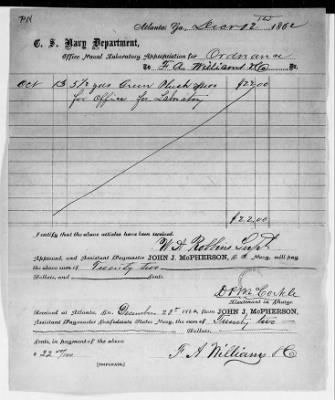 PN
Atlanta Ga, Decr 12th 1862
C. S. Navy Department,
Office Naval Laboratory Appropriation for Ordnance
To F. A. Williams & Co Dr.
Oct 13 5 1/2 yds Green Plush $22.00
for Office for Labratory
$22.00
I certify that the above articles have been received.
W. H. Robbins Supt
Approved, and Assistant Paymaster JOHN J. McPHERSON, C. S. Navy, will pay
the above sum of Twenty two
Dollars, and Cents.
D. P. McCorkle
Lieutenant in Charge
Received at Atlanta, Ga. December 22d 1862, from JOHN J. McPHERSON,
Assistant Paymaster Confederate States Navy, the sum of Twenty two
Dollars,
Cents, in payment of the above
$ 22 00/100 F. A. Williams & C
(DUPLICATE.)